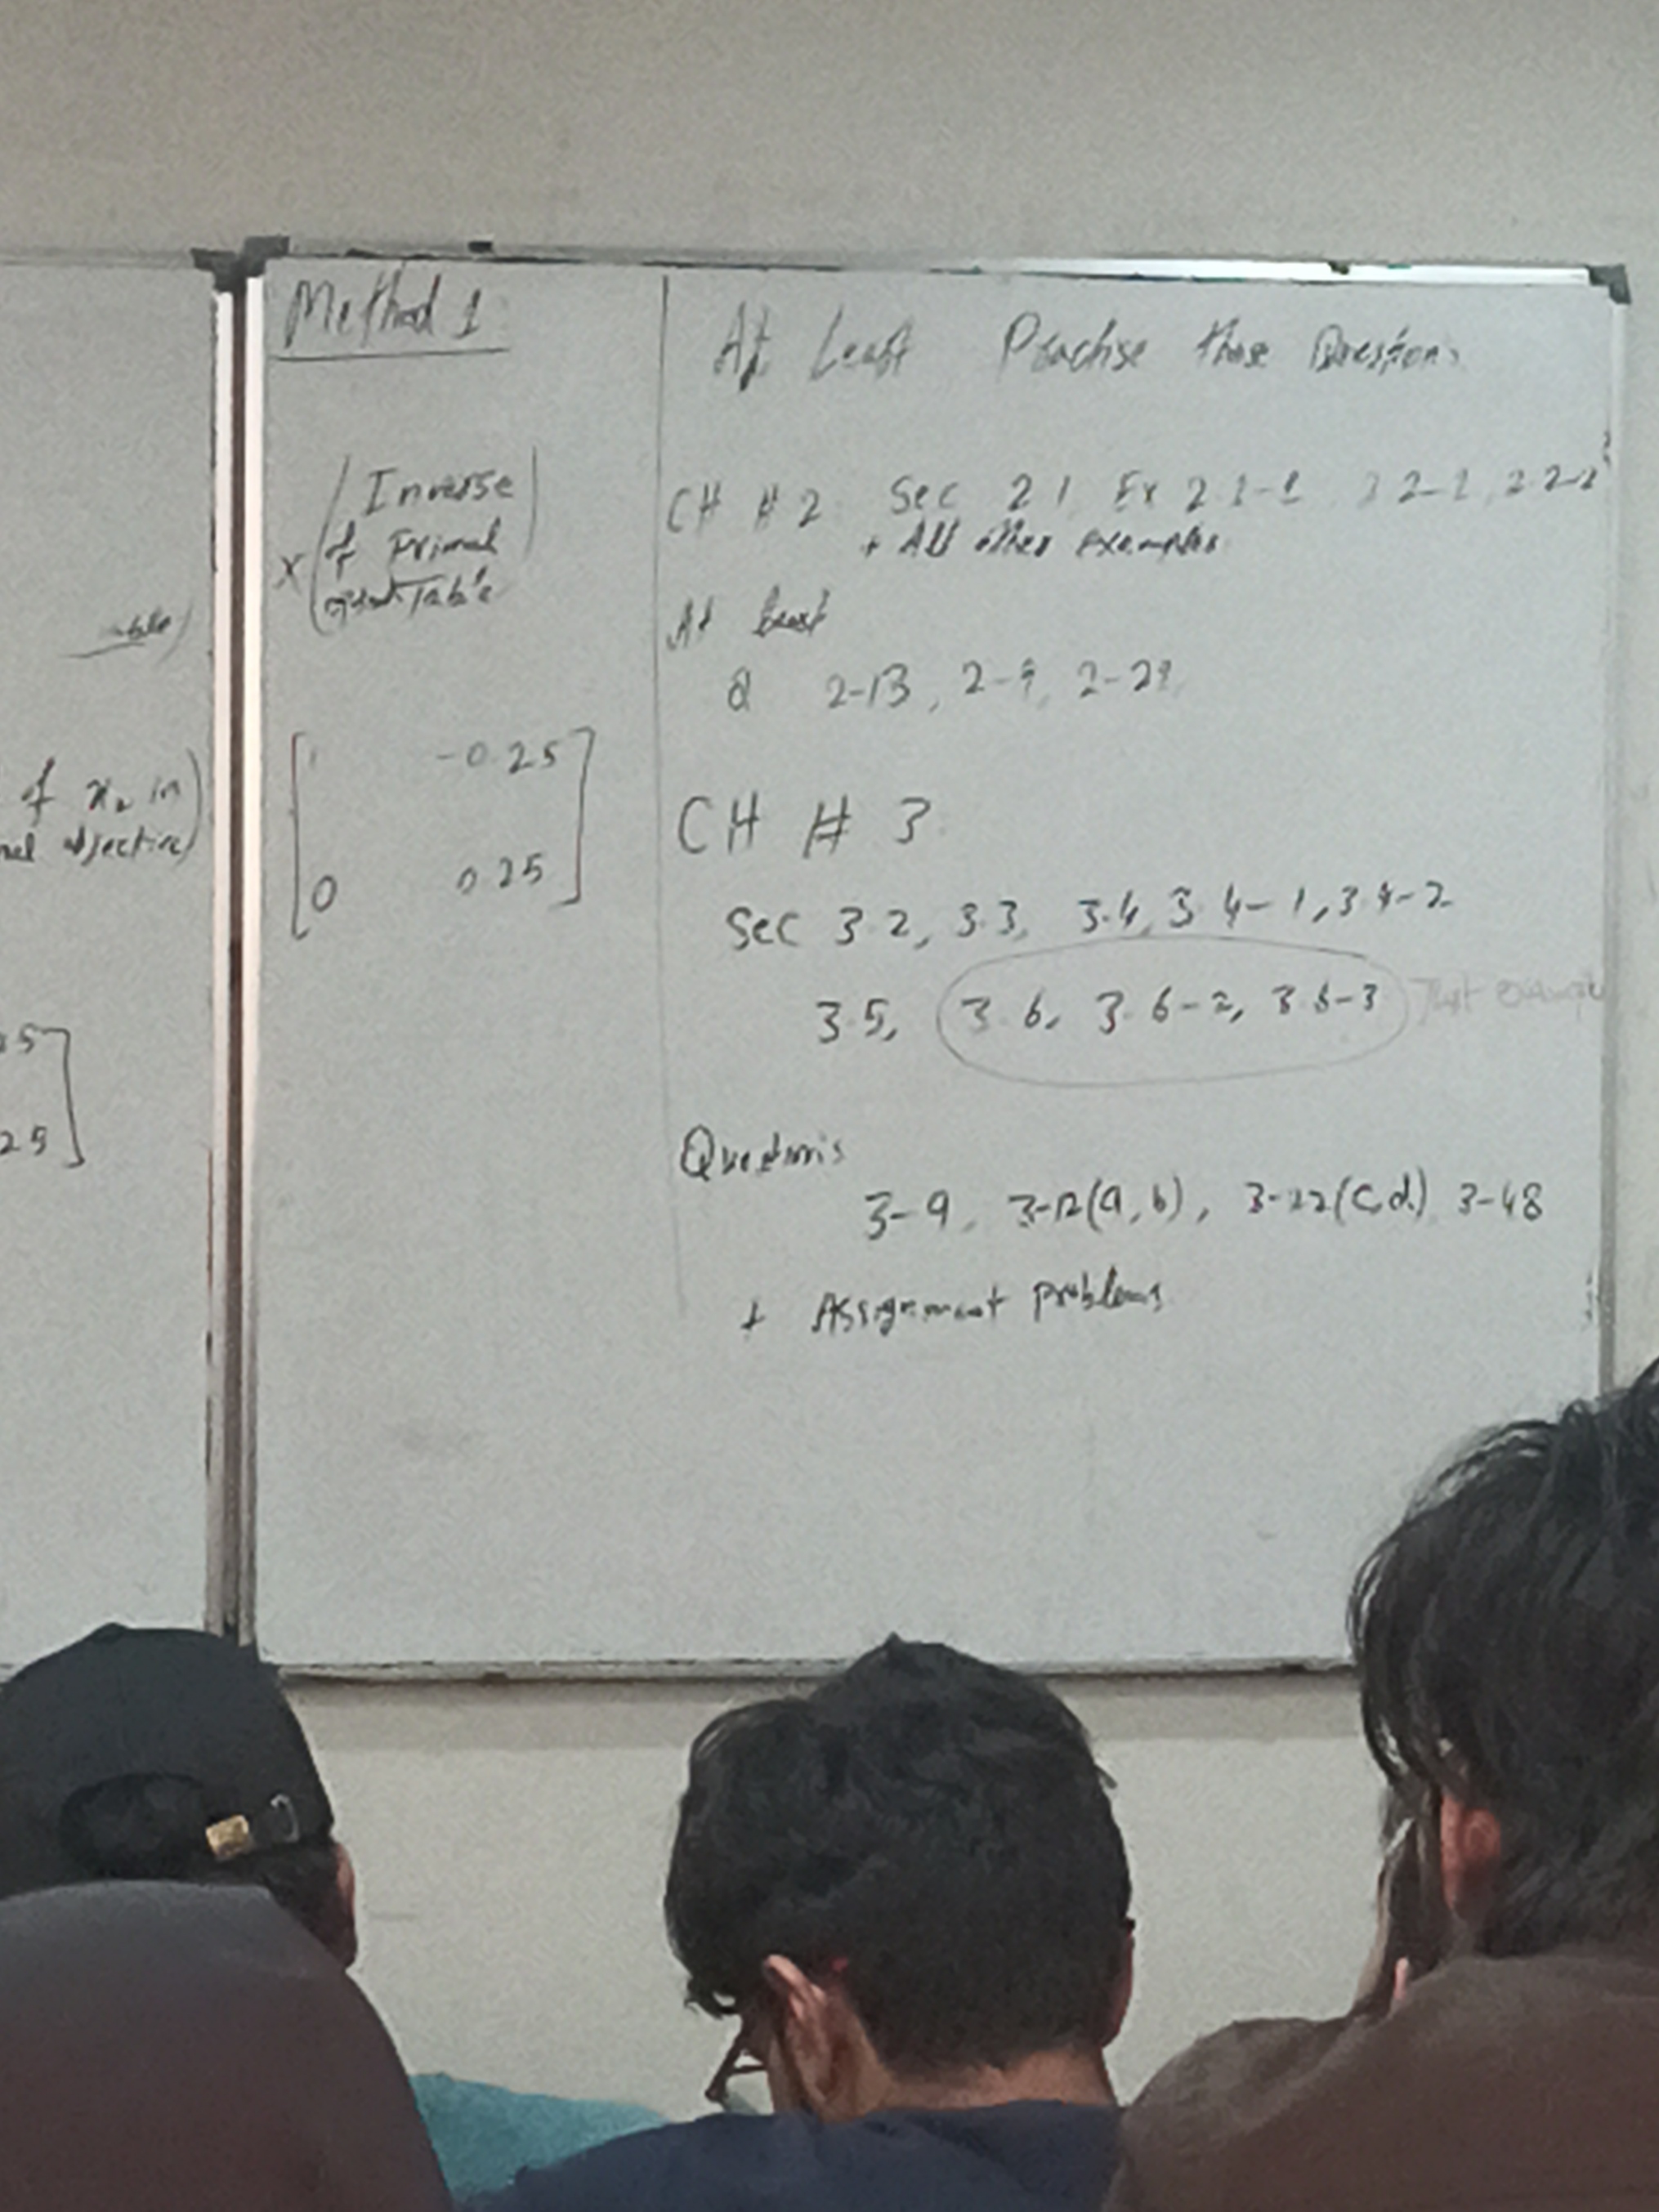 able)
of x₂ in)
objective)
5]
25]
Method 1
x (Inverse
of Primal
Table)
[1 -0.25
0 0.25]
At Least Practise these Questions
CH # 2 Sec 2.1 Ex 2.1-1 2.2-1, 2.2-2
+ All other examples
At least
Q 2-13, 2-9, 2-29
CH # 3
Sec 3.2, 3.3, 3.4, 3.4-1, 3.4-2
3.5, 3.6, 3.6-2, 3.6-3 Just example
Questions
3-9, 3-12(a, b), 3-22(c, d) 3-48
+ Assignment problems